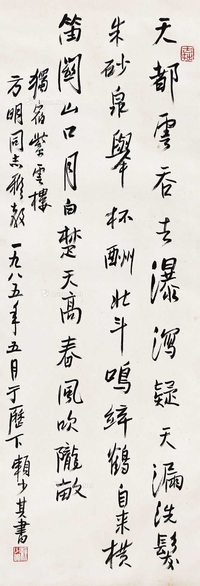 天都雲吞吉瀑瀉疑天漏洗髮
朱砂泉舉杯酬北斗鳴絃鶴自來橫
笛關山口月白楚天高春風吹隴畝
獨宿紫雲樓
方明同志雅教 一九八五年五月于歷下賴少其書